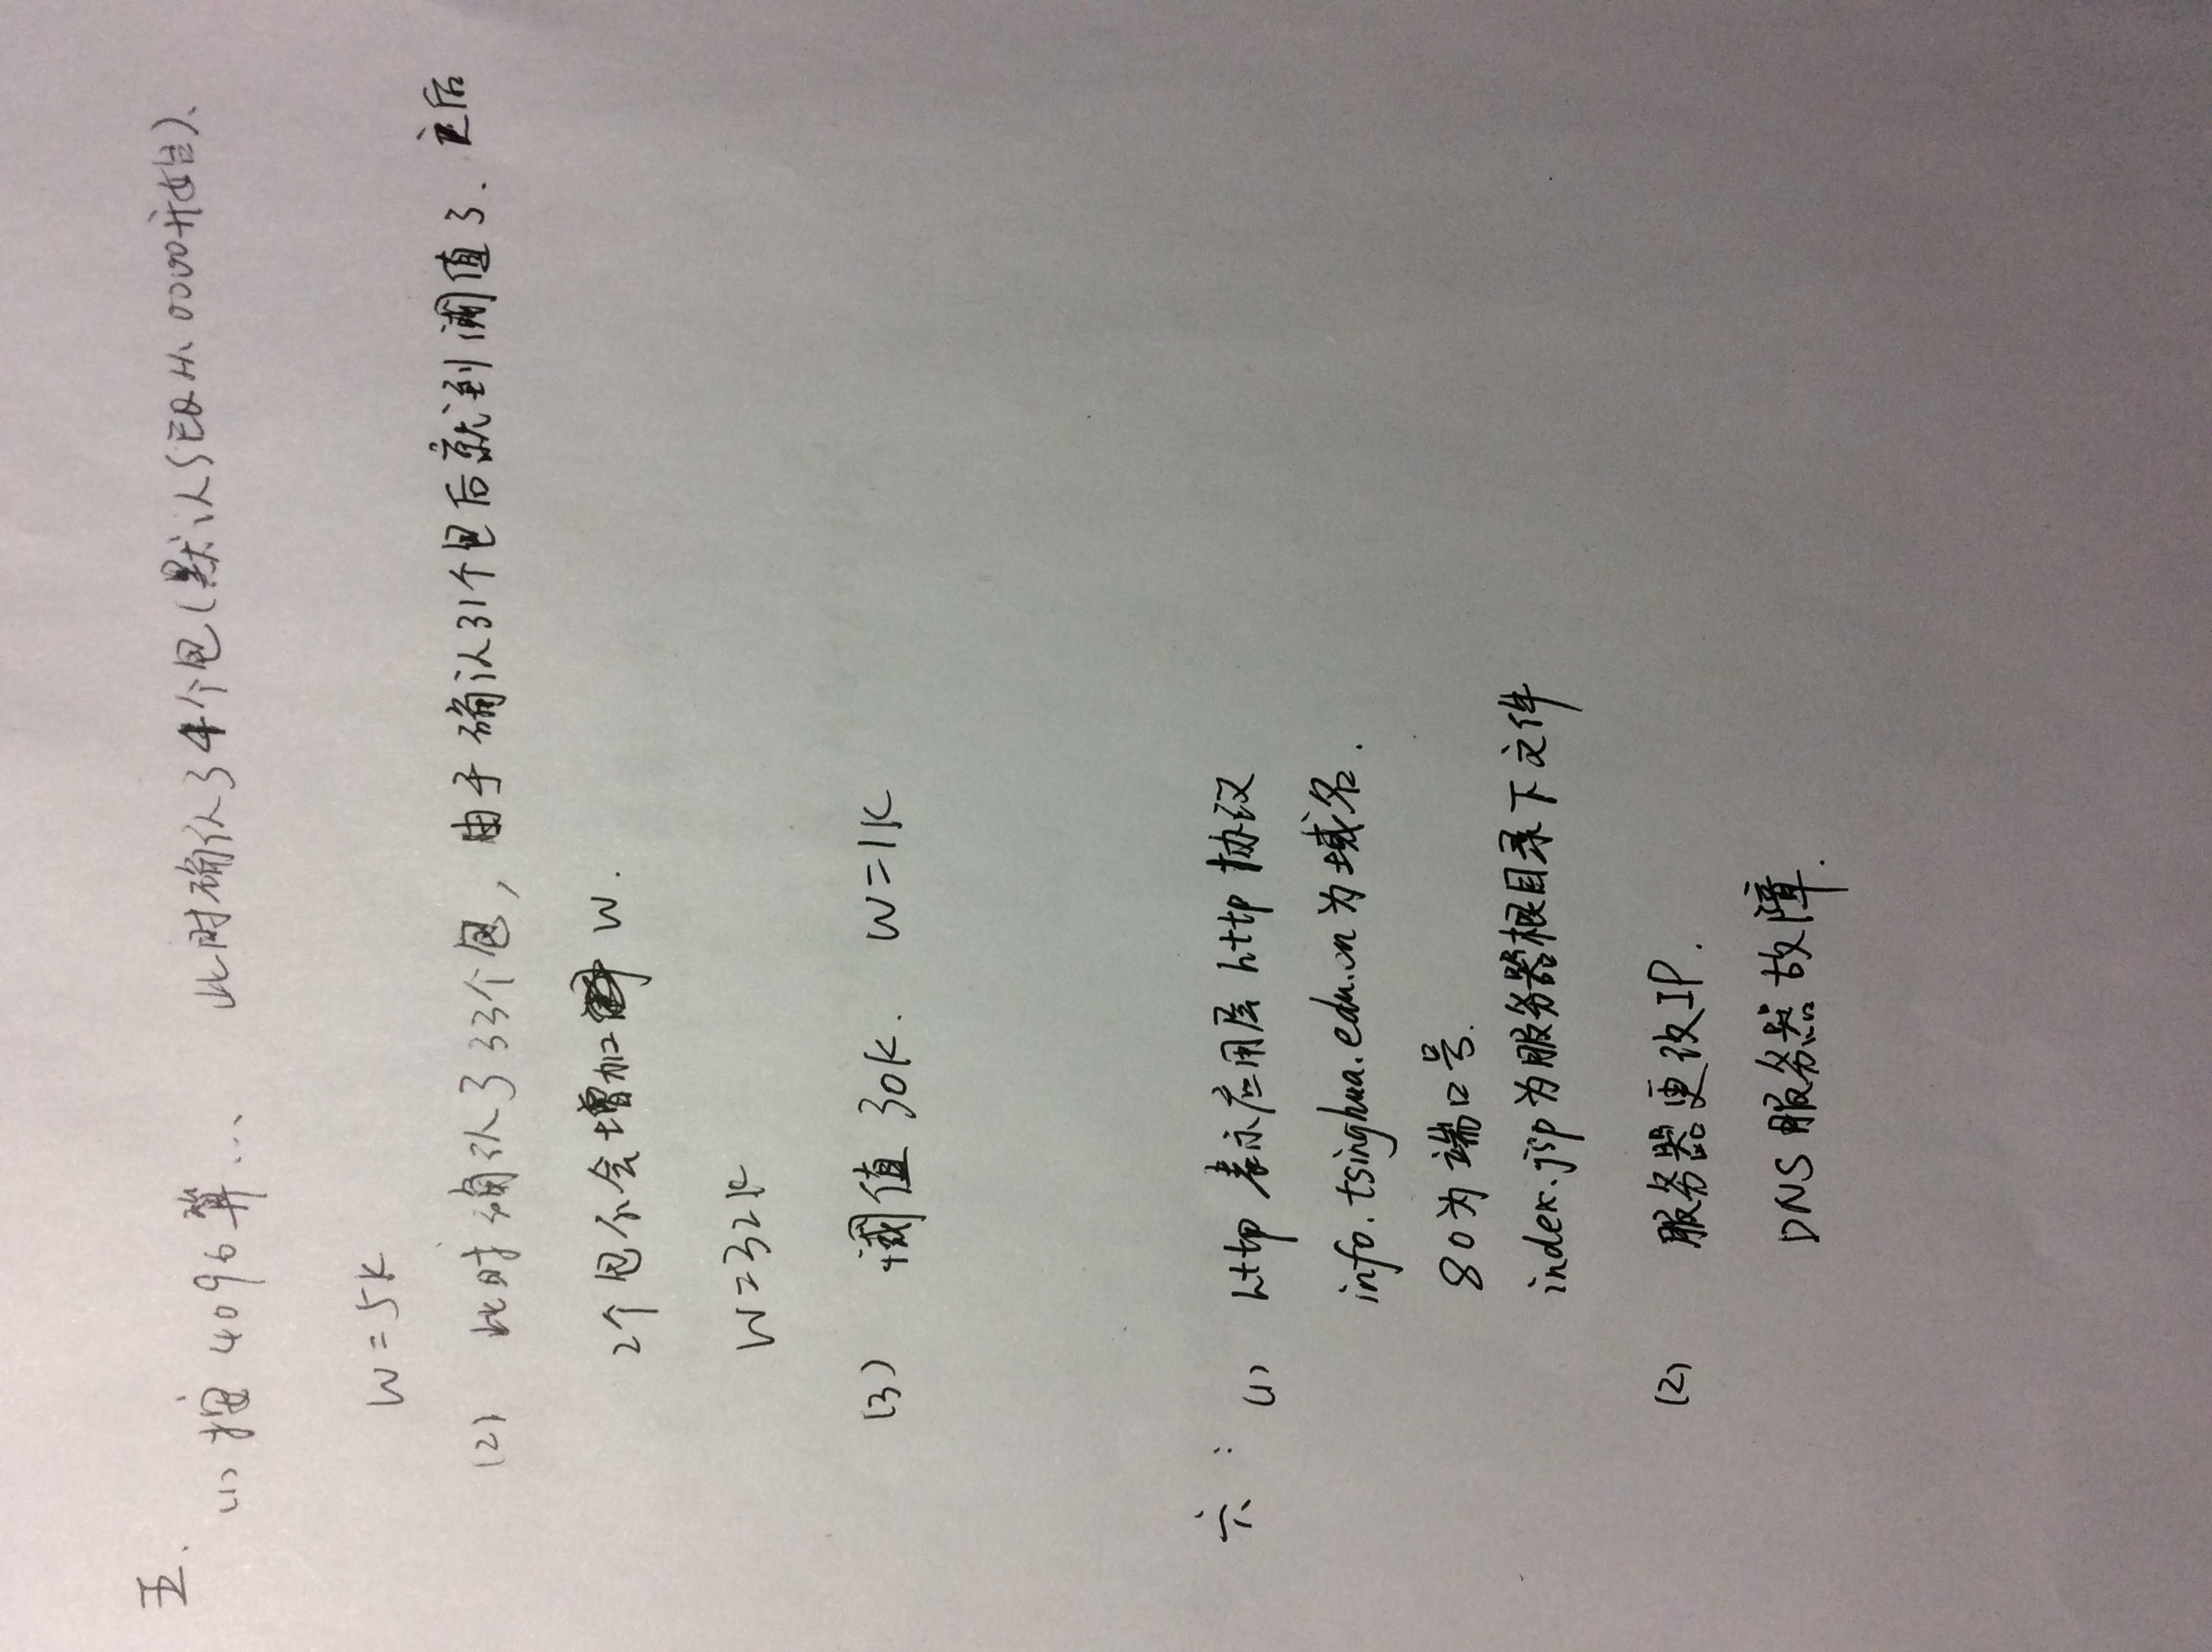 五.
(1) 按 4096 算... 此时确认了4个包(默认SEQ从 0000开始).
W=5K
(2) 此时确认了33个包, 由于确认31个包后就到阈值了. 之后
2个包不会增加 W.
W=32K
(3) 阈值 30K. W=1K
六:
(1) http 表示应用层 http 协议
info.tsinghua.edu.cn为域名.
80为端口号.
index.jsp为服务器根目录下文件
(2) 服务器更改IP.
DNS服务器故障.